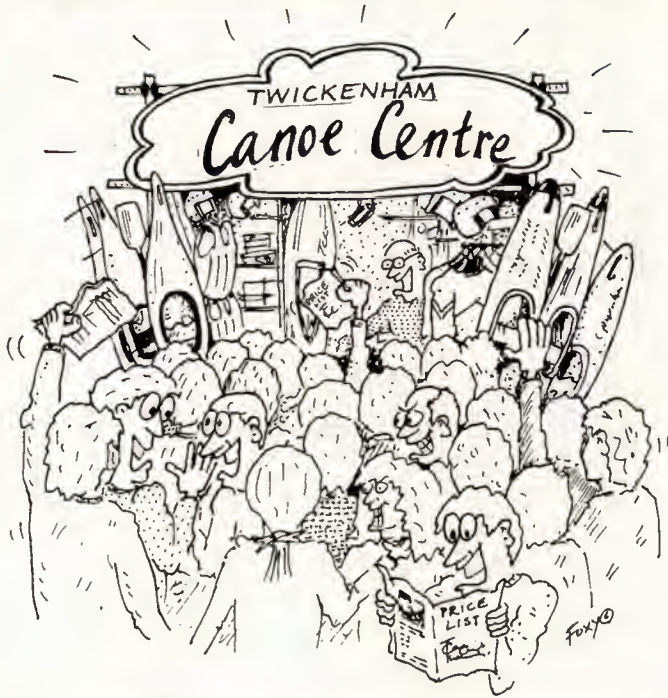 TWICKENHAM
Canoe Centre
PRICE
PRICE
LIST
FOXY©